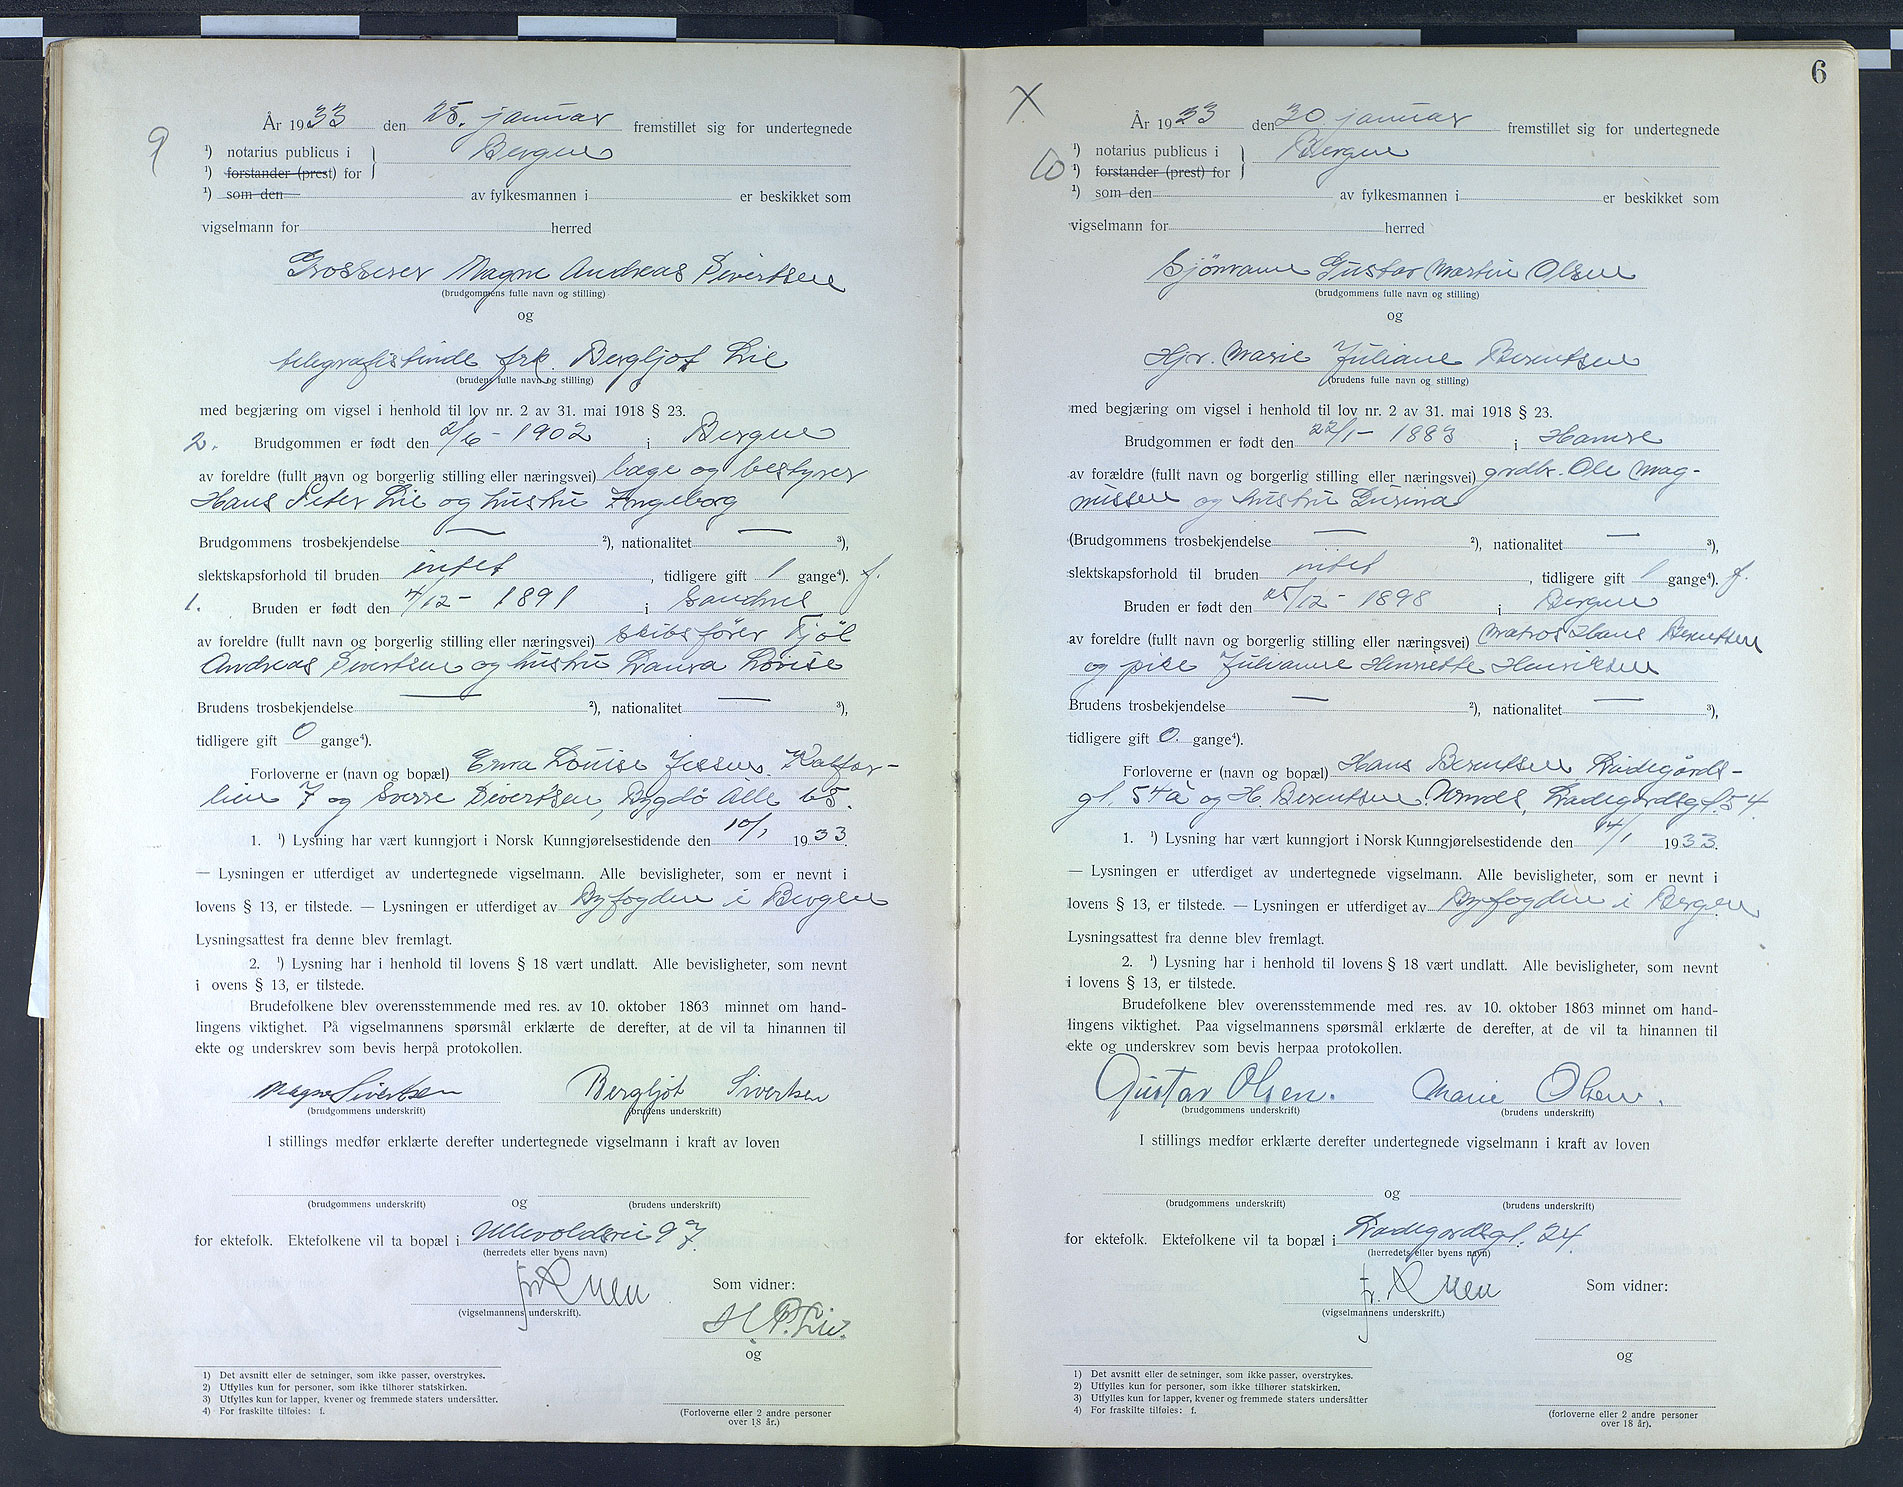 9
År 1933 den 25. januar fremstillet sig for undertegnede
¹) notarius publicus i } Bergen
¹) forstander (prest) for
¹) som den av fylkesmannen i er beskikket som
vigselmann for herred
Grosserer Magne Andreas Sivertsen
(brudgommens fulle navn og stilling)
og
telegrafistinde frk. Bergljot Lie
(brudens fulle navn og stilling)
med begjæring om vigsel i henhold til lov nr. 2 av 31. mai 1918 § 23.
2. Brudgommen er født den 2/6 - 1902 i Bergen
av foreldre (fullt navn og borgerlig stilling eller næringsvei) læge og bestyrer
Hans Peter Lie og hustru Ingeborg
Brudgommens trosbekjendelse — ²), nationalitet — ³),
slektskapsforhold til bruden intet, tidligere gift 1 gange⁴). f.
1. Bruden er født den 4/12 - 1891 i Sandnes
av foreldre (fullt navn og borgerlig stilling eller næringsvei) skibsfører Tjöl
Andreas Sivertsen og hustru Laura Lovise
Brudens trosbekjendelse — ²), nationalitet — ³),
tidligere gift 0 gange⁴).
Forloverne er (navn og bopæl) Erna Louise Jessen, Kalfar-
lien 7 og Sverre Sivertsen, Bygdö Alle 65.
1. ¹) Lysning har vært kunngjort i Norsk Kunngjørelsestidende den 10/1 1933.
— Lysningen er utferdiget av undertegnede vigselmann. Alle bevisligheter, som er nevnt i
lovens § 13, er tilstede. — Lysningen er utferdiget av Byfogden i Bergen
Lysningsattest fra denne blev fremlagt.
2. ¹) Lysning har i henhold til lovens § 18 vært undlatt. Alle bevisligheter, som nevnt
i ovens § 13, er tilstede.
Brudefolkene blev overensstemmende med res. av 10. oktober 1863 minnet om hand-
lingens viktighet. På vigselmannens spørsmål erklærte de derefter, at de vil ta hinannen til
ekte og underskrev som bevis herpå protokollen.
Magne Sivertsen Bergljot Sivertsen
(brudgommens underskrift) (brudens underskrift)
I stillings medfør erklærte derefter undertegnede vigselmann i kraft av loven
og
(brudgommens underskrift) (brudens underskrift)
for ektefolk. Ektefolkene vil ta bopæl i Ullevoldsvei 97.
(herredets eller byens navn)
Som vidner:
(vigselmannens underskrift).
H. P. Lie.
og
1) Det avsnitt eller de setninger, som ikke passer, overstrykes.
2) Utfylles kun for personer, som ikke tilhører statskirken.
3) Utfylles kun for lapper, kvener og fremmede staters undersåtter.
4) For fraskilte tilføies: f.
(Forloverne eller 2 andre personer
over 18 år.)
6
X
10
År 1933 den 30. januar fremstillet sig for undertegnede
¹) notarius publicus i } Bergen
¹) forstander (prest) for
¹) som den av fylkesmannen i er beskikket som
vigselmann for herred
Sjömann Gustav Martin Olsen
(brudgommens fulle navn og stilling)
og
Hjv. Marie Juliane Berentsen
(brudens fulle navn og stilling)
med begjæring om vigsel i henhold til lov nr. 2 av 31. mai 1918 § 23.
Brudgommen er født den 22/1 - 1883 i Hamre
av forældre (fullt navn og borgerlig stilling eller næringsvei) grdbr. Ole Mag-
nussen og hustru Gurina
(Brudgommens trosbekjendelse — ²), nationalitet — ³),
slektskapsforhold til bruden intet, tidligere gift 1 gange⁴). f.
Bruden er født den 25/12 - 1898 i Bergen
av foreldre (fullt navn og borgerlig stilling eller næringsvei) Matros Hans Berentsen
og pike Julianne Henriette Henriksen
Brudens trosbekjendelse — ²), nationalitet — ³),
tidligere gift 0. gange⁴).
Forloverne er (navn og bopæl) Hans Berentsen, Ladegårds-
gt. 54 a og H. Berentsen, Ladegårdsgt. 54.
1. ¹) Lysning har vært kunngjort i Norsk Kunngjørelsestidende den 14/1 1933.
— Lysningen er utferdiget av undertegnede vigselmann. Alle bevisligheter, som er nevnt i
lovens § 13, er tilstede. — Lysningen er utferdiget av Byfogden i Bergen
Lysningsattest fra denne blev fremlagt.
2. ¹) Lysning har i henhold til lovens § 18 vært undlatt. Alle bevisligheter, som nevnt
i lovens § 13, er tilstede.
Brudefolkene blev overensstemmende med res. av 10. oktober 1863 minnet om hand-
lingens viktighet. Paa vigselmannens spørsmål erklærte de derefter, at de vil ta hinannen til
ekte og underskrev som bevis herpaa protokollen.
Gustav Olsen. Marie Olsen.
(brudgommens underskrift) (brudens underskrift)
I stillings medfør erklærte derefter undertegnede vigselmann i kraft av loven
og
(brudgommens underskrift) (brudens underskrift)
for ektefolk. Ektefolkene vil ta bopæl i Ladegårdsgt. 24.
(herredets eller byens navn)
Som vidner:
(vigselmannens underskrift.)
og
1) Det avsnitt eller de setninger, som ikke passer, overstrykes.
2) Utfylles kun for personer, som ikke tilhører statskirken.
3) Utfylles kun for lapper, kvener og fremmede staters undersåtter
4) For fraskilte tilføies: f.
(forloverne eller 2 andre personer
over 18 år).